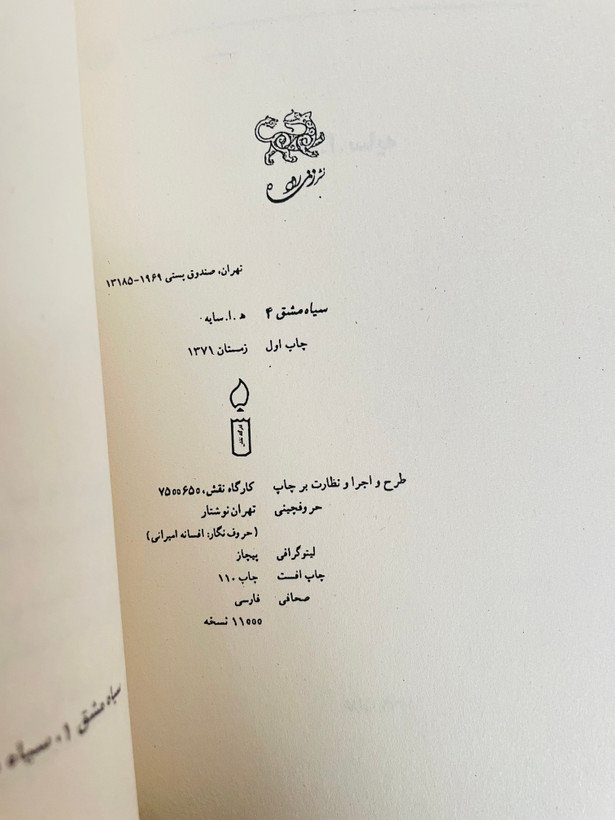 نشر زنده رود
تهران، صندوق پستی ۱۹۶۹-۱۳۱۸۵
سیاه مشق ۴ ه‍ .ا.سایه
چاپ اول زمستان ۱۳۷۱
کارگاه نقش
طرح و اجرا و نظارت بر چاپ کارگاه نقش، ۷۵۰۰۶۵۰
حروفچینی تهران نوشتار
(حروف نگار: افسانه امیرانی)
لیتوگرافی پیچاز
چاپ افست چاپ ۱۱۰
صحافی فارسی
۱۱۰۰۰ نسخه
سیاه مشق ۱۰ سیاه